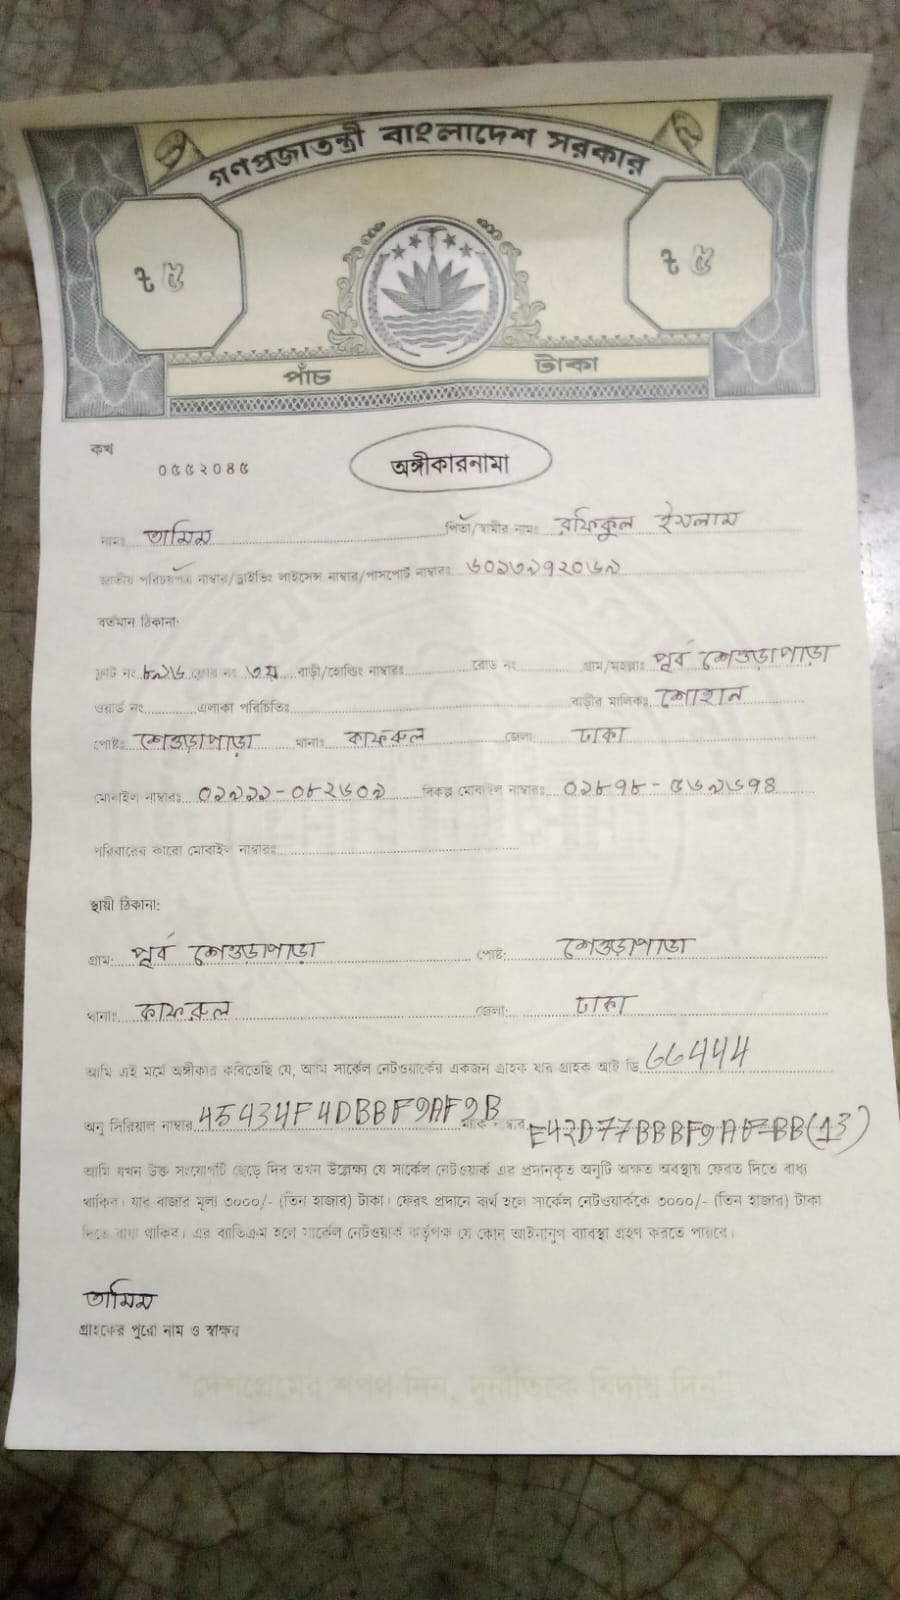 গণপ্রজাতন্ত্রী বাংলাদেশ সরকার
৳ ৫ ৳ ৫
পাঁচ টাকা
কখ
০৫৫২০৪৫ অঙ্গীকারনামা
নামঃ তামিম পিতা/স্বামীর নামঃ রফিকুল ইসলাম
জাতীয় পরিচয়পত্র নাম্বার/ড্রাইভিং লাইসেন্স নাম্বার/পাসপোর্ট নাম্বারঃ ৬০১৩৯৭২০৬৯
বর্তমান ঠিকানা:
ফ্লাট নং ৮৯৬ ফ্লোর নং ৩য় বাড়ী/হোল্ডিং নাম্বারঃ রোড নং গ্রাম/মহল্লাঃ পূর্ব শেওড়াপাড়া
ওয়ার্ড নং এলাকা পরিচিতিঃ বাড়ীর মালিকঃ সোহান
পোষ্টঃ শেওড়াপাড়া থানাঃ কাফরুল জেলা: ঢাকা
মোবাইল নাম্বারঃ ০১৯১১-০৮২৬০৯ বিকল্প মোবাইল নাম্বারঃ ০১৮৭৮-৫৬৯৬৭৪
পরিবারের কারো মোবাইল নাম্বারঃ
স্থায়ী ঠিকানা:
গ্রাম: পূর্ব শেওড়াপাড়া পোষ্ট: শেওড়াপাড়া
থানাঃ কাফরুল জেলা: ঢাকা
আমি এই মর্মে অঙ্গীকার করিতেছি যে, আমি সার্কেল নেটওয়ার্কের একজন গ্রাহক যার গ্রাহক আই ডি 66444
অনু সিরিয়াল নাম্বার 45434F4DBBF9AF9B E42D77BBBF9AF=BB(13)
আমি যখন উক্ত সংযোগটি ছেড়ে দিব তখন উল্লেক্ষ্য যে সার্কেল নেটওয়ার্ক এর প্রদানকৃত অনুটি অক্ষত অবস্থায় ফেরত দিতে বাধ্য
থাকিব। যার বাজার মূল্য ৩০০০/- (তিন হাজার) টাকা। ফেরৎ প্রদানে ব্যর্থ হলে সার্কেল নেটওয়ার্ককে ৩০০০/- (তিন হাজার) টাকা
দিতে বাধ্য থাকিব। এর ব্যতিক্রম হলে সার্কেল নেটওয়ার্ক কর্তৃপক্ষ যে কোন আইনানুগ ব্যাবস্থা গ্রহণ করতে পারবে।
তামিম
গ্রাহকের পুরো নাম ও স্বাক্ষর
"দেশপ্রেমের শপথ নিন, দুর্নীতিকে বিদায় দিন"